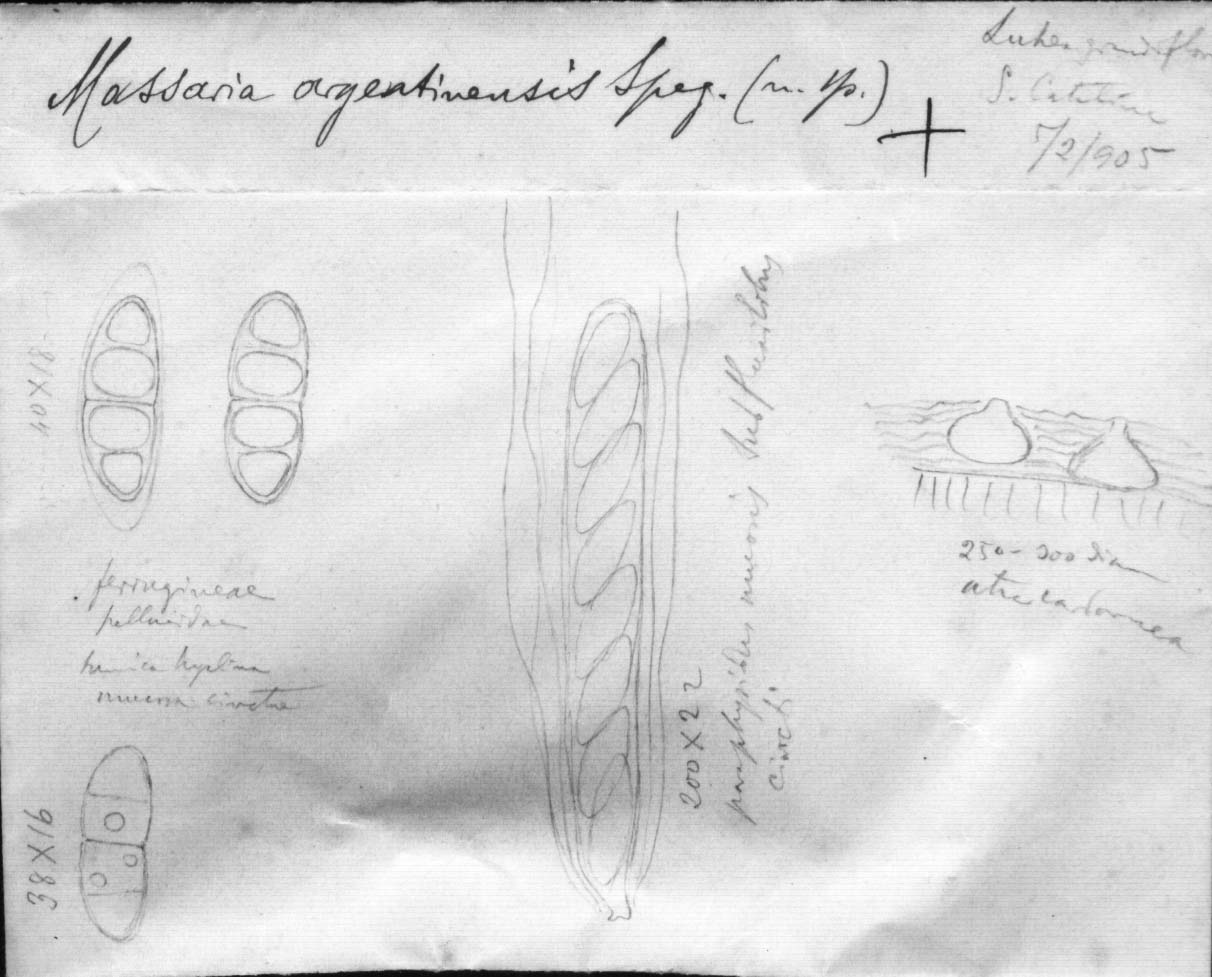 Massaria argentinensis Speg. (n. sp.)
S. Catalina
5/2/905
40X18
ferrugineae
pellucidae
tunica hyalina
mucosa cinctae
38X16
200X22
paraphysibus mucosis
cincti
250-300 diam